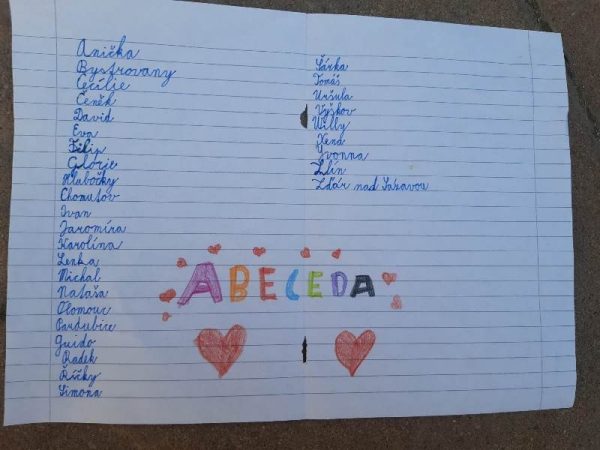 Anička
Bystrovany
Cecílie
Čeněk
David
Eva
Filip
Glorie
Hlubočky
Chomutov
Ivan
Jaromíra
Karolína
Lenka
Michal
Nataša
Olomouc
Pardubice
Guido
Radek
Říčky
Simona
Šárka
Tomáš
Uršula
Vyškov
Willy
Xena
Yvonna
Zlín
Žďár nad Sázavou
ABECEDA